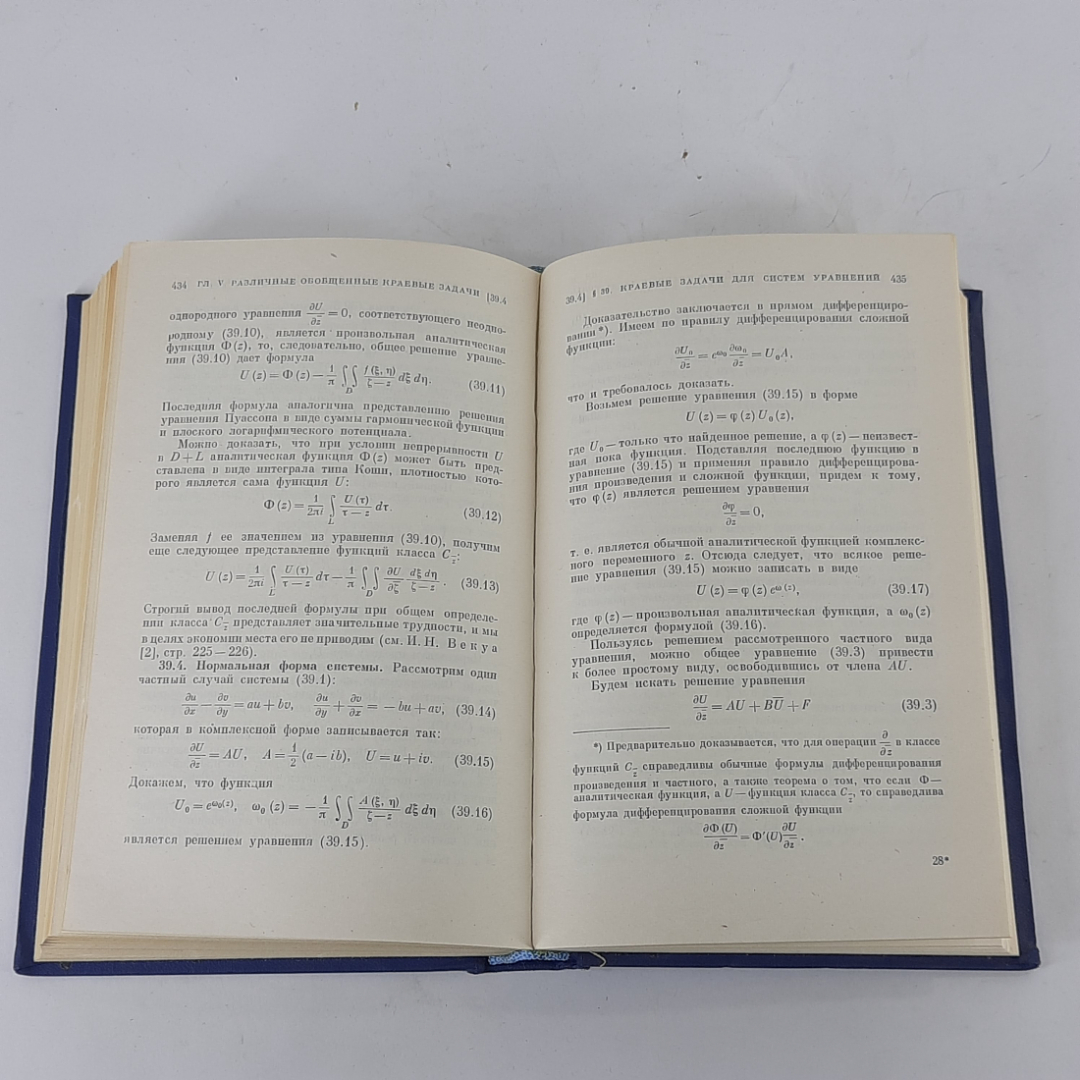 434 ГЛ. V. РАЗЛИЧНЫЕ ОБОБЩЕННЫЕ КРАЕВЫЕ ЗАДАЧИ [39.4
однородного уравнения ∂U/∂z̄ = 0, соответствующего неодно-
родному (39.10), является произвольная аналитическая
функция Φ(z), то, следовательно, общее решение уравне-
ния (39.10) дает формула
U (z) = Φ (z) — 1/π ∬_D f(ξ, η)/(ζ — z) dξ dη. (39.11)
Последняя формула аналогична представлению решения
уравнения Пуассона в виде суммы гармонической функции
и плоского логарифмического потенциала.
Можно доказать, что при условии непрерывности U
в D + L аналитическая функция Φ (z) может быть пред-
ставлена в виде интеграла типа Коши, плотностью кото-
рого является сама функция U:
Φ (z) = 1/2πi ∫_L U (τ)/(τ — z) dτ. (39.12)
Заменяя f ее значением из уравнения (39.10), получим
еще следующее представление функций класса C_z̄:
U (z) = 1/2πi ∫_L U (τ)/(τ — z) dτ — 1/π ∬_D ∂U/∂ζ̄ dξ dη/(ζ — z). (39.13)
Строгий вывод последней формулы при общем определе-
нии класса C_z̄ представляет значительные трудности, и мы
в целях экономии места его не приводим (см. И. Н. Векуа
[2], стр. 225—226).
39.4. Нормальная форма системы. Рассмотрим один
частный случай системы (39.1):
∂u/∂x — ∂v/∂y = au + bv, ∂u/∂y + ∂v/∂x = — bu + av, (39.14)
которая в комплексной форме записывается так:
∂U/∂z̄ = AU, A = 1/2 (a — ib), U = u + iv. (39.15)
Докажем, что функция
U₀ = e^ω₀(z), ω₀ (z) = — 1/π ∬_D A (ξ, η)/(ζ — z) dξ dη (39.16)
является решением уравнения (39.15).
39.4] § 39. КРАЕВЫЕ ЗАДАЧИ ДЛЯ СИСТЕМ УРАВНЕНИЙ 435
Доказательство заключается в прямом дифференциро-
вании *). Имеем по правилу дифференцирования сложной
функции:
∂U₀/∂z̄ = e^ω₀ ∂ω₀/∂z̄ = U₀A,
что и требовалось доказать.
Возьмем решение уравнения (39.15) в форме
U (z) = φ (z) U₀ (z),
где U₀ — только что найденное решение, а φ (z) — неизвест-
ная пока функция. Подставляя последнюю функцию в
уравнение (39.15) и применяя правило дифференцирова-
ния произведения и сложной функции, придем к тому,
что φ (z) является решением уравнения
∂φ/∂z̄ = 0,
т. е. является обычной аналитической функцией комплекс-
ного переменного z. Отсюда следует, что всякое реше-
ние уравнения (39.15) можно записать в виде
U (z) = φ (z) e^ω₀(z), (39.17)
где φ (z) — произвольная аналитическая функция, а ω₀ (z)
определяется формулой (39.16).
Пользуясь решением рассмотренного частного вида
уравнения, можно общее уравнение (39.3) привести
к более простому виду, освободившись от члена AU.
Будем искать решение уравнения
∂U/∂z̄ = AU + BŪ + F (39.3)
*) Предварительно доказывается, что для операции ∂/∂z̄ в классе
функций C_z̄ справедливы обычные формулы дифференцирования
произведения и частного, а также теорема о том, что если Φ —
аналитическая функция, а U — функция класса C_z̄, то справедлива
формула дифференцирования сложной функции
∂Φ (U)/∂z̄ = Φ′(U) ∂U/∂z̄.
28*